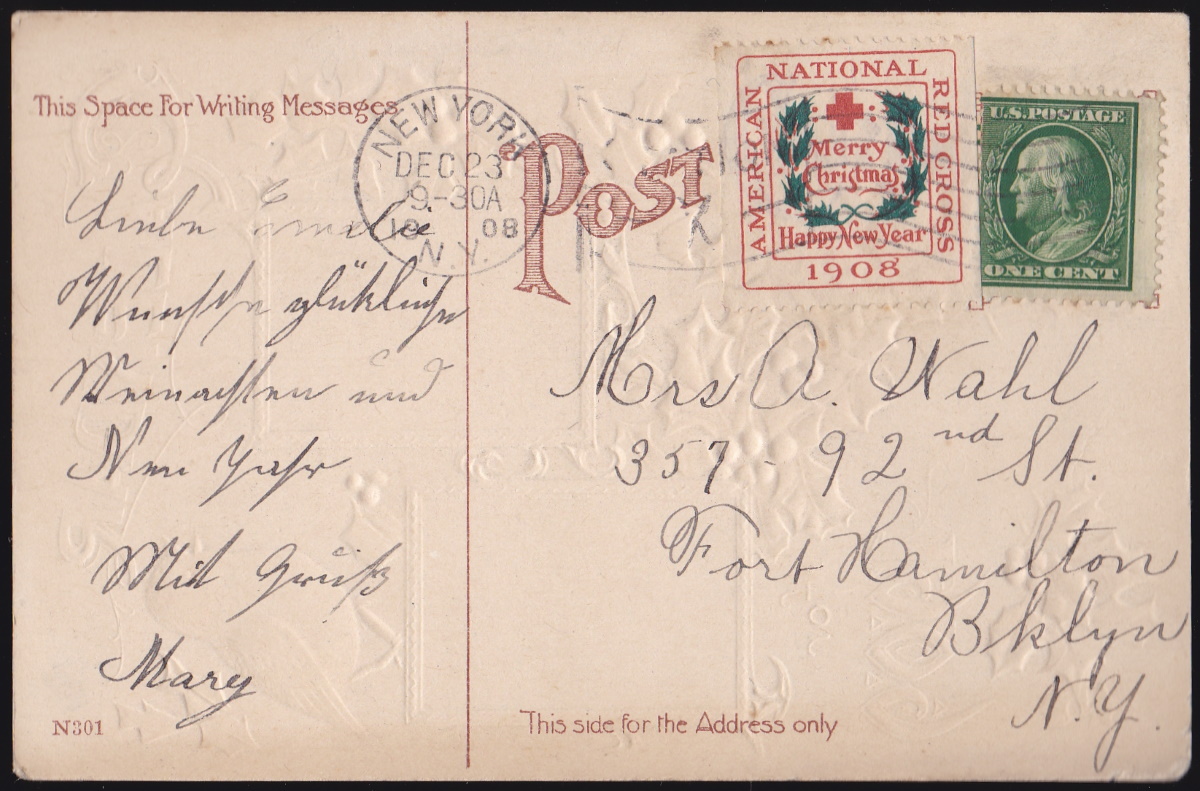 This Space For Writing Messages
NEW YORK
DEC 23
9-30A
19 08
N.Y.
POST
AMERICAN NATIONAL RED CROSS
Merry
Christmas
Happy New Year
1908
U.S. POSTAGE
ONE CENT
Liebe Emelie
Wunsche glükliche
Weinachten und
Neu Jahr
Mit Gruß
Mary
Mrs A. Wahl
357 - 92nd St.
Fort Hamilton
Bklyn
N.Y.
N301
This side for the Address only